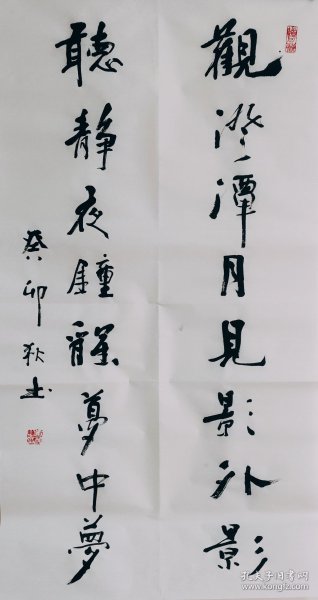 觀澄潭月見影外影
聽靜夜鐘醒夢中夢
癸卯秋书
孔夫子旧书网
www.kongfz.com